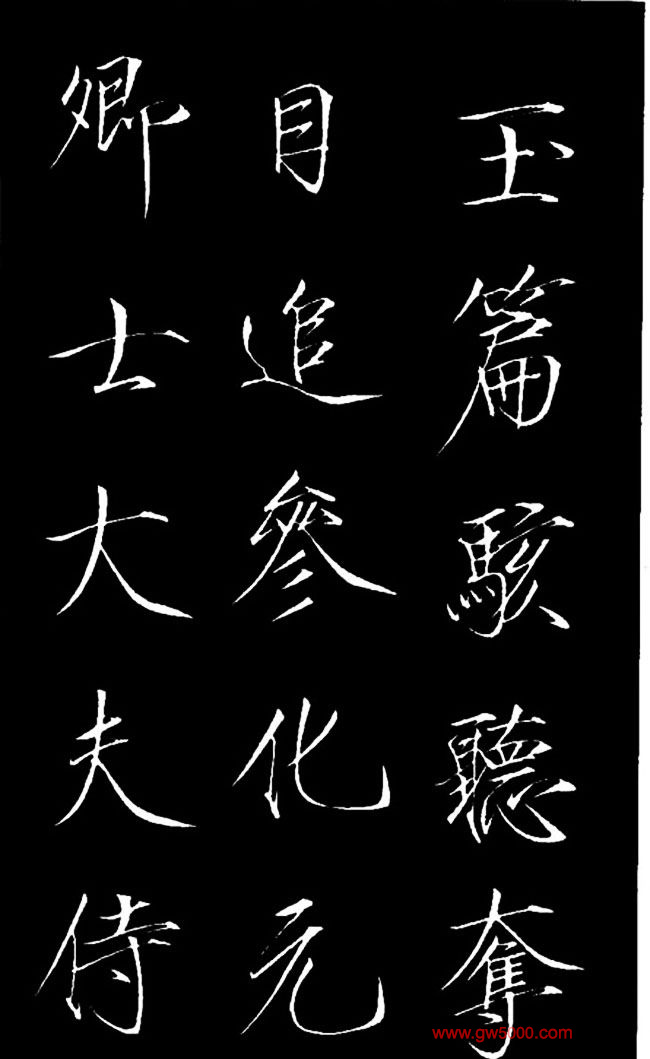 玉篇駭聽奪
目追參化元
卿士大夫侍
www.gw5000.com